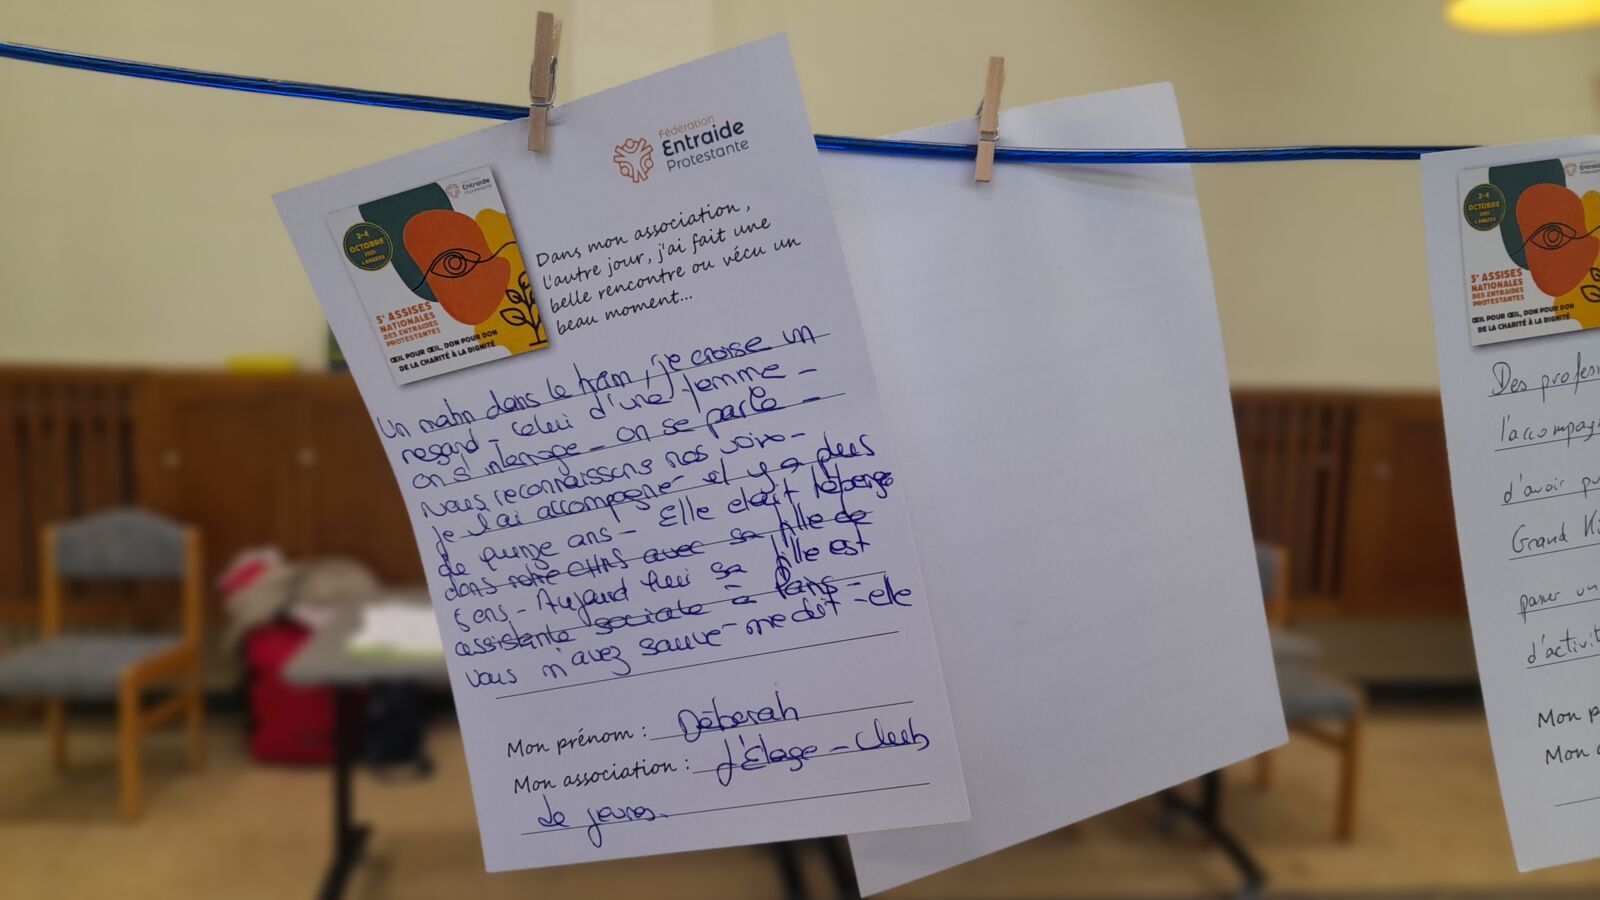 Fédération
Entraide
Protestante
Entraide
Protestante
3-4
OCTOBRE
2025
ANGERS
5e ASSISES
NATIONALES
DES ENTRAIDES
PROTESTANTES
ŒIL POUR ŒIL, DON POUR DON
DE LA CHARITÉ À LA DIGNITÉ
Dans mon association,
l'autre jour, j'ai fait une
belle rencontre ou vécu un
beau moment...
Un matin dans le tram, je croise un
regard - celui d'une femme -
on s'interroge - on se parle -
nous reconnaissons nos voix -
Je l'ai accompagné il y a plus
de quinze ans - Elle était hébergé
dans notre CHRS avec sa fille de
6 ans - Aujourd'hui sa fille est
assistante sociale à Paris -
vous m'avez sauvé - me dit-elle
Mon prénom : Déborah
Mon association : L'Etage - Club
de jeunes.
Entraide
3-4
OCTOBRE
2025
ANGERS
5e ASSISES
NATIONALES
DES ENTRAIDES
PROTESTANTES
ŒIL POUR ŒIL, DON POUR DON
DE LA CHARITÉ À LA DIGNITÉ
Des profess
l'accompag
d'avoir pu
Grand
passer un
d'activit
Mon p
Mon